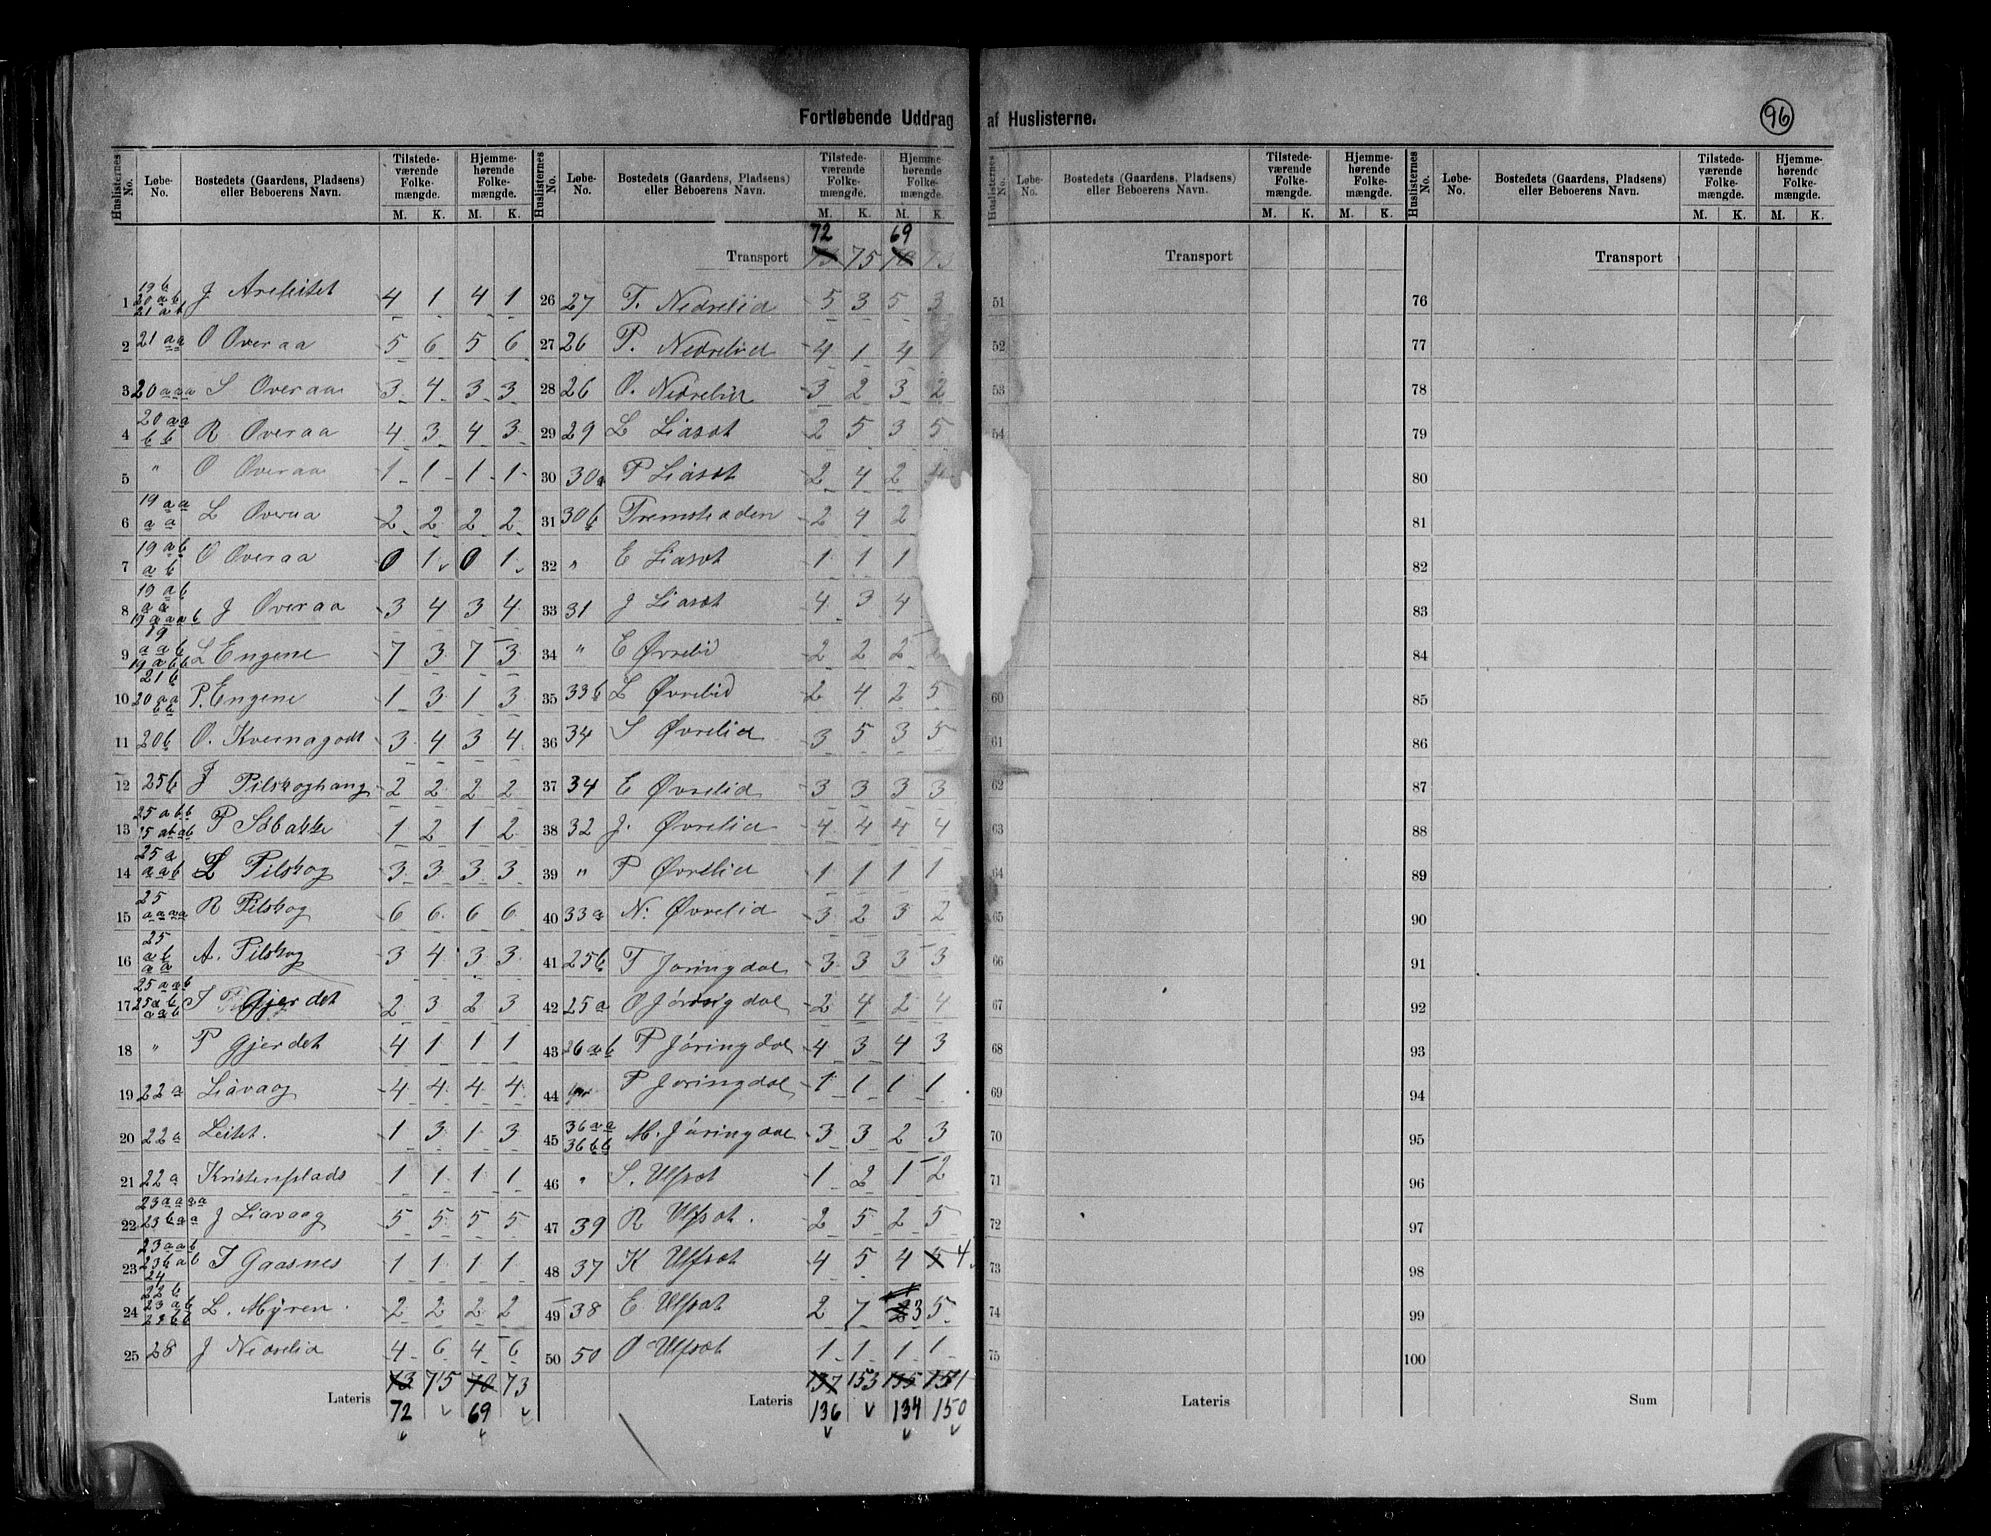 Fortløbende Uddrag af Huslisterne.
96
Huslisternes No. Løbe-No. Bostedets (Gaardens, Pladsens) eller Beboerens Navn. Tilstedeværende Folkemængde. M. K. Hjemmehørende Folkemængde. M. K.
1 19b 20ab 21ab J 4 1 4 1
2 21aa O Øveraa 5 6 5 6
3 20aaa S Øveraa 3 4 3 3
4 20aa bb R Øveraa 4 3 4 3
5 " O Øveraa 1 1 1 1
6 19aa aa L Øveraa 2 2 2 2
7 19ab ab O Øveraa 0 1 0 1
8 19ab aa J Øveraa 3 4 3 4
9 L Engene 7 3 7 3
10 P. Engene 1 3 1 3
11 20b O. Kvernagodt 3 4 3 4
12 25b J Pilskoghaug 2 2 2 2
13 25abb 25abab P Solbakke 1 2 1 2
14 25a aab L Pilskog 3 3 3 3
15 25 aaaa R Pilskog 6 6 6 6
16 25 ab aa A. Pilskog 3 4 3 3
17 25aab 25ab aab Gjerdet 2 3 2 3
18 " P Gjerdet 4 1 1 1
19 22a Liavaag 4 4 4 4
20 22a Leitet. 1 3 1 3
21 22a Kristenplads 1 1 1 1
22 23aaaa 23baa J Liavaag 5 5 5 5
23 23aab 23bab 24 Gaasnes 1 1 1 1
24 22b 23ab 23bb L. Myren 2 2 2 2
25 28 J Nedrelid 4 6 4 6
Lateris 73 75 70 73
72 69
Huslisternes No. Løbe-No. Bostedets (Gaardens, Pladsens) eller Beboerens Navn. Tilstedeværende Folkemængde. M. K. Hjemmehørende Folkemængde. M. K.
72 69
Transport 73 75 70 73
26 27 T. Nedrelid 5 3 5 3
27 26 P. Nedrelid 4 1 4
28 26 O. Nedrelid 3 2 3 2
29 29 L Liaset 2 5 3 5
30 30a P Liaset 2 4 2 4
31 30b Tremstaden 2 4 2
32 " E Liaset 1 1 1
33 31 J Liaset 4 3 4
34 " E Øvrelid 2 2 2
35 33b L Øvrelid 2 4 2 5
36 34 S Øvrelid 3 5 3 5
37 34 E Øvrelid 3 3 3 3
38 32 J. Øvrelid 4 4 4 4
39 " P Øvrelid 1 1 1 1
40 33a N: Øvrelid 3 2 3 2
41 25b T Jøringdal 3 3 3 3
42 25a O Jøringdal 2 4 2 4
43 26ab P Jøringdal 4 3 4 3
44 P Jøringdal 1 1 1 1
45 36aa 36bb M. Jøringdal 3 3 2 3
46 " S. Ulfset 1 2 1 2
47 39 R Ulfset. 2 5 2 5
48 37 K Ulfset 4 5 4 5 4
49 38 E Ulfset 2 7 3 5
50 50 O Ulfset 1 1 1 1
Lateris 137 153 135 151
136 134 150
Huslisternes No. Løbe-No. Bostedets (Gaardens, Pladsens) eller Beboerens Navn. Tilstedeværende Folkemængde. M. K. Hjemmehørende Folkemængde. M. K.
Transport
51
52
53
54
60
61
62
63
64
65
66
67
68
69
70
71
72
73
74
75
Lateris
Huslisternes No. Løbe-No. Bostedets (Gaardens, Pladsens) eller Beboerens Navn. Tilstedeværende Folkemængde. M. K. Hjemmehørende Folkemængde. M. K.
Transport
76
77
78
79
80
81
82
83
84
85
86
87
88
89
90
91
92
93
94
95
96
97
98
99
100
Sum